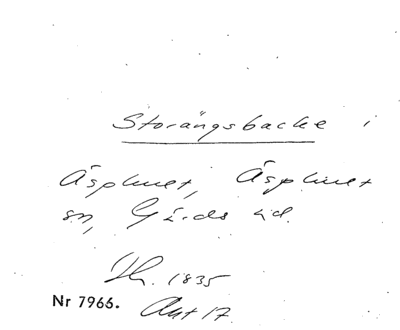 Storängsbacke i
Äsphult, Äsphult
sn, Gärds hd.
Th. 1835
Nr 7966. Akt 17